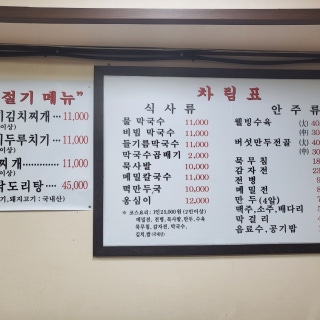 절기 메뉴"
김치찌개 ··· 11,000
이상)
두루치기 ··· 11,000
이상)
찌개 ············ 11,000
도리탕 ··· 45,000
돼지고기 : 국내산)
차 림 표
식 사 류
물 막국수 11,000
비빔 막국수 11,000
들기름막국수 11,000
막국수곱배기 2,000
묵사발 10,000
메밀칼국수 11,000
떡만두국 10,000
옹심이 12,000
※ 코스요리 : 1인 23,000원 (2인이상)
메밀전, 전병, 묵사발, 만두, 수육
묵무침, 감자전, 막국수,
김치,쌀(국내산)
안 주 류
웰빙수육 (大) 40
(中) 30
버섯만두전골 (大) 40
(中) 30
묵 무 침
감 자 전
전 병
메 밀 전
만 두 (4알)
맥주,소주,배다리
막 걸 리
음료수,공기밥